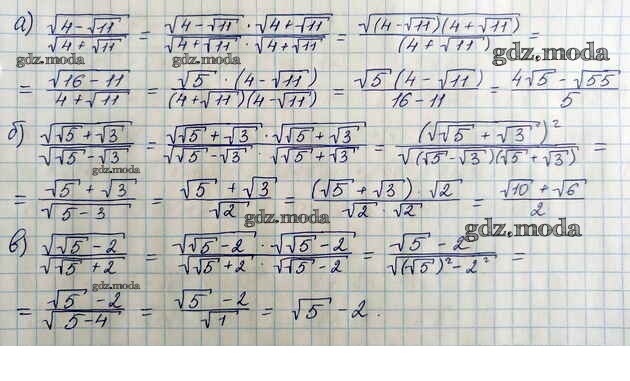 а) √(4-√11) / √(4+√11) = √(4-√11) · √(4+√11) / √(4+√11) · √(4+√11) = √((4-√11)(4+√11)) / (4+√11) =
gdz.moda
gdz.moda
= √(16-11) / (4+√11) = √5 · (4-√11) / (4+√11)(4-√11) = √5 (4-√11) / 16-11 = 4√5 - √55 / 5
б) √(√5+√3) / √(√5-√3) = √(√5+√3) · √(√5+√3) / √(√5-√3) · √(√5+√3) = (√(√5+√3))² / √((√5-√3)(√5+√3)) =
gdz.moda
= √5+√3 / √(5-3) = √5+√3 / √2 = (√5+√3) · √2 / √2 · √2 = √10+√6 / 2
gdz.moda
gdz.moda
в) √(√5-2) / √(√5+2) = √(√5-2) · √(√5-2) / √(√5+2) · √(√5-2) = √5-2 / √((√5)²-2²) =
gdz.moda
= √5-2 / √(5-4) = √5-2 / √1 = √5-2.